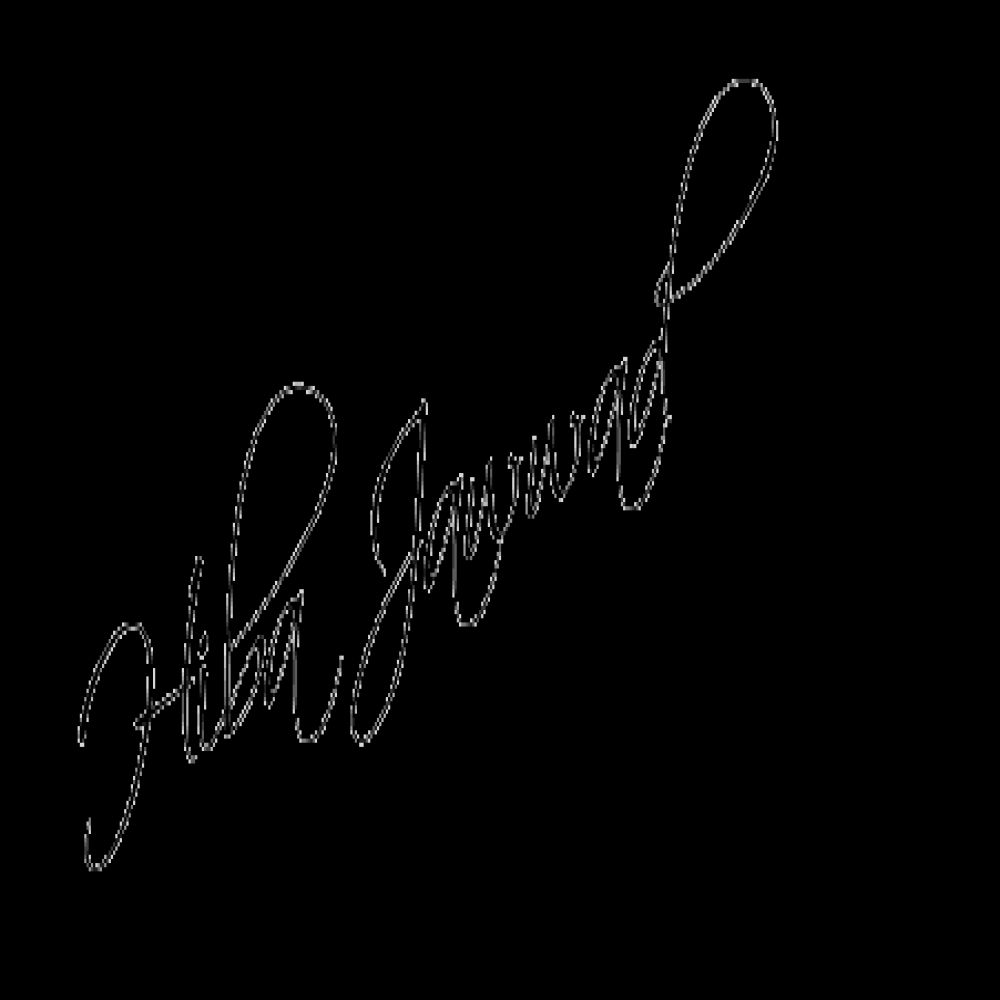 Hiba Jawwad